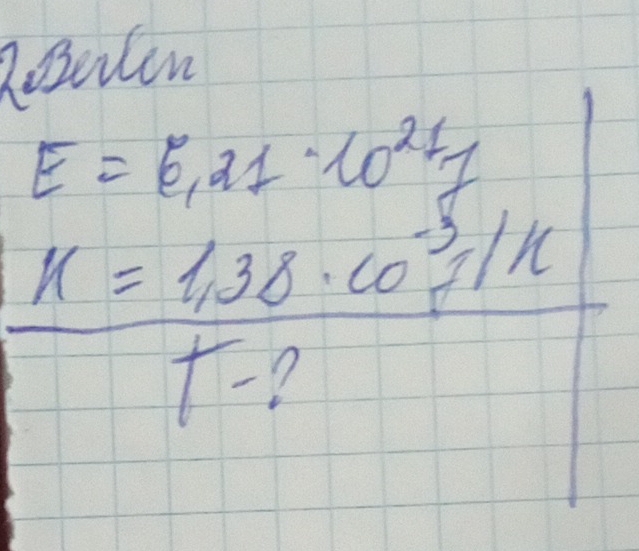 2. Berlen
E = 6,21 · 10²¹ J
K = 1,38 · 10⁻³ J/K
T - ?